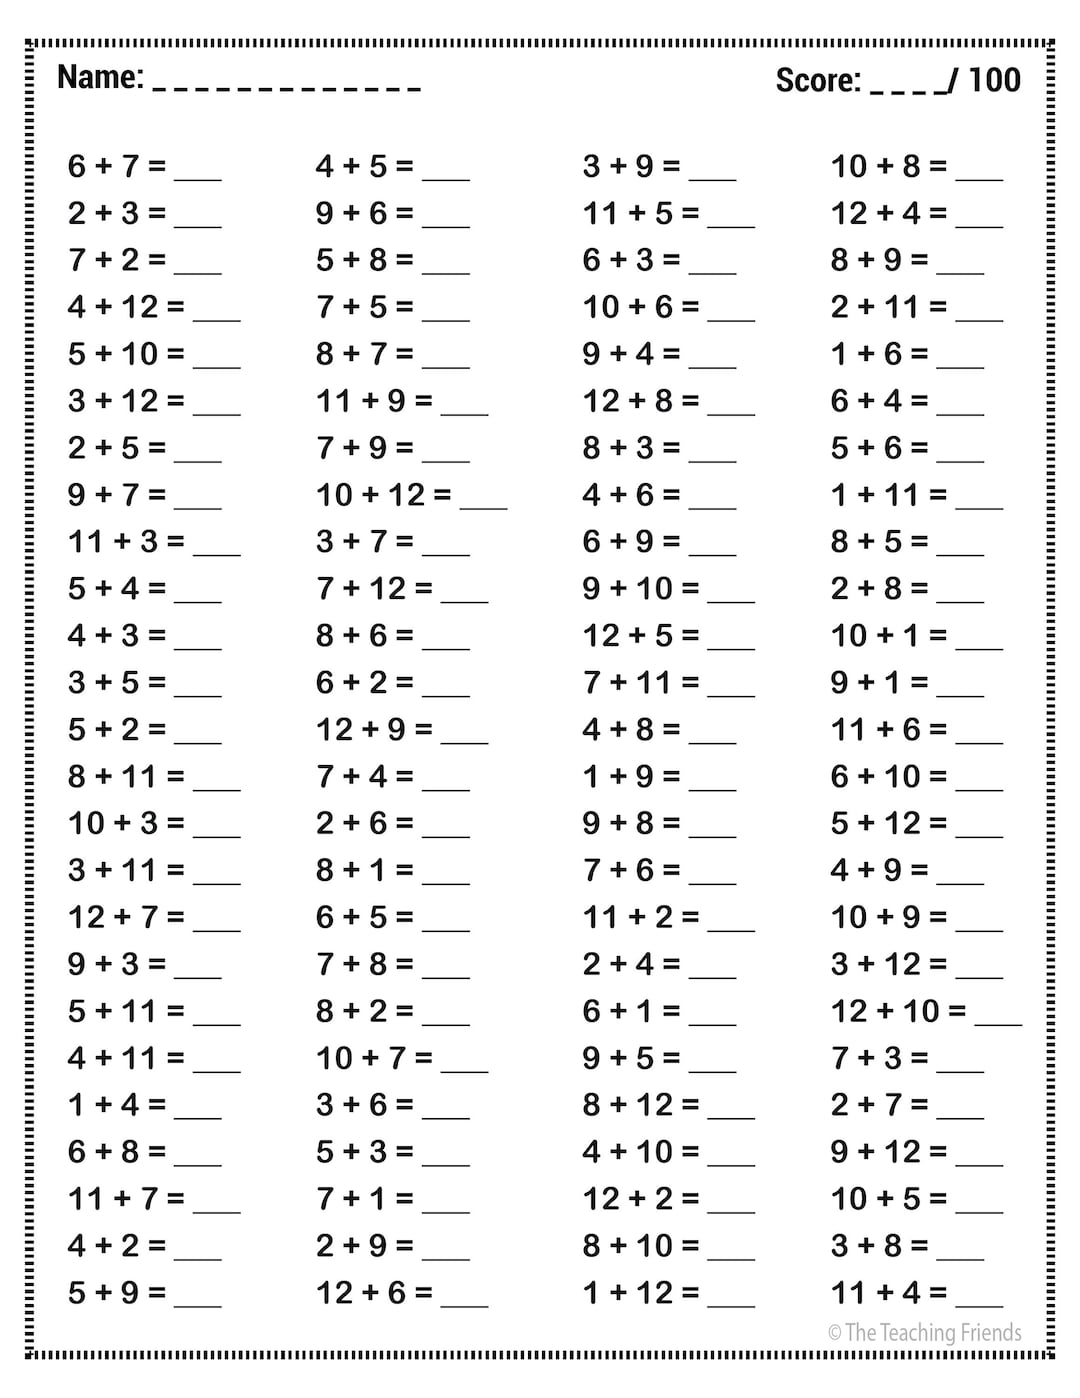 Name: _ _ _ _ _ _ _ _ _ _ _ _ _ Score: _ _ _ _/ 100
6 + 7 = ___ 4 + 5 = ___ 3 + 9 = ___ 10 + 8 = ___
2 + 3 = ___ 9 + 6 = ___ 11 + 5 = ___ 12 + 4 = ___
7 + 2 = ___ 5 + 8 = ___ 6 + 3 = ___ 8 + 9 = ___
4 + 12 = ___ 7 + 5 = ___ 10 + 6 = ___ 2 + 11 = ___
5 + 10 = ___ 8 + 7 = ___ 9 + 4 = ___ 1 + 6 = ___
3 + 12 = ___ 11 + 9 = ___ 12 + 8 = ___ 6 + 4 = ___
2 + 5 = ___ 7 + 9 = ___ 8 + 3 = ___ 5 + 6 = ___
9 + 7 = ___ 10 + 12 = ___ 4 + 6 = ___ 1 + 11 = ___
11 + 3 = ___ 3 + 7 = ___ 6 + 9 = ___ 8 + 5 = ___
5 + 4 = ___ 7 + 12 = ___ 9 + 10 = ___ 2 + 8 = ___
4 + 3 = ___ 8 + 6 = ___ 12 + 5 = ___ 10 + 1 = ___
3 + 5 = ___ 6 + 2 = ___ 7 + 11 = ___ 9 + 1 = ___
5 + 2 = ___ 12 + 9 = ___ 4 + 8 = ___ 11 + 6 = ___
8 + 11 = ___ 7 + 4 = ___ 1 + 9 = ___ 6 + 10 = ___
10 + 3 = ___ 2 + 6 = ___ 9 + 8 = ___ 5 + 12 = ___
3 + 11 = ___ 8 + 1 = ___ 7 + 6 = ___ 4 + 9 = ___
12 + 7 = ___ 6 + 5 = ___ 11 + 2 = ___ 10 + 9 = ___
9 + 3 = ___ 7 + 8 = ___ 2 + 4 = ___ 3 + 12 = ___
5 + 11 = ___ 8 + 2 = ___ 6 + 1 = ___ 12 + 10 = ___
4 + 11 = ___ 10 + 7 = ___ 9 + 5 = ___ 7 + 3 = ___
1 + 4 = ___ 3 + 6 = ___ 8 + 12 = ___ 2 + 7 = ___
6 + 8 = ___ 5 + 3 = ___ 4 + 10 = ___ 9 + 12 = ___
11 + 7 = ___ 7 + 1 = ___ 12 + 2 = ___ 10 + 5 = ___
4 + 2 = ___ 2 + 9 = ___ 8 + 10 = ___ 3 + 8 = ___
5 + 9 = ___ 12 + 6 = ___ 1 + 12 = ___ 11 + 4 = ___
© The Teaching Friends